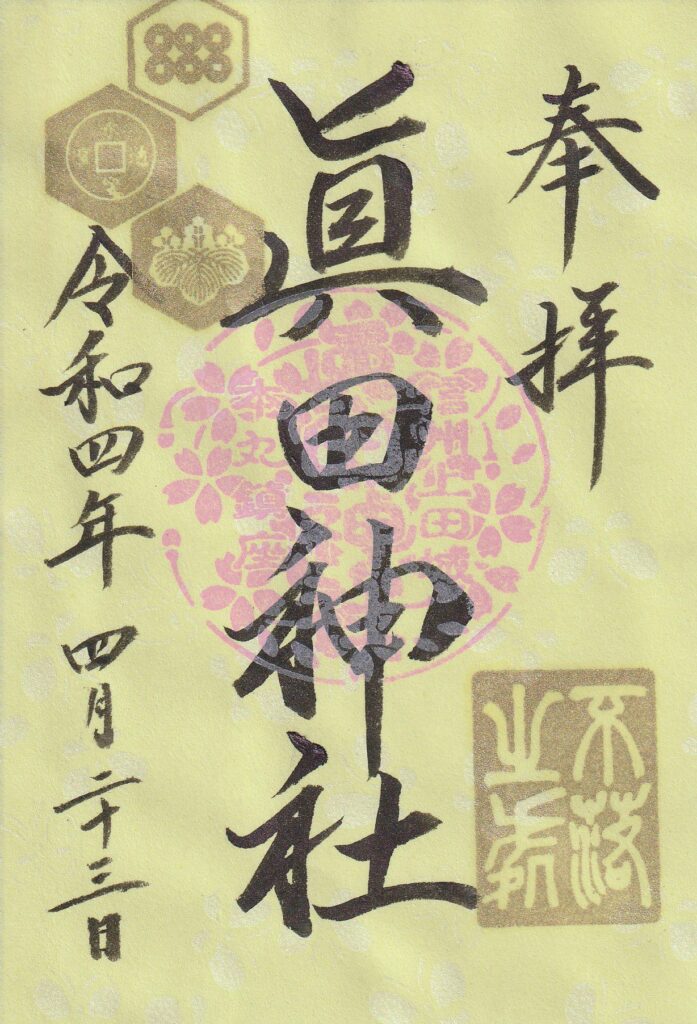 奉拝
眞田神社
信州上田城
本丸鎮座
不落
之
永
令和四年
四月二十三日